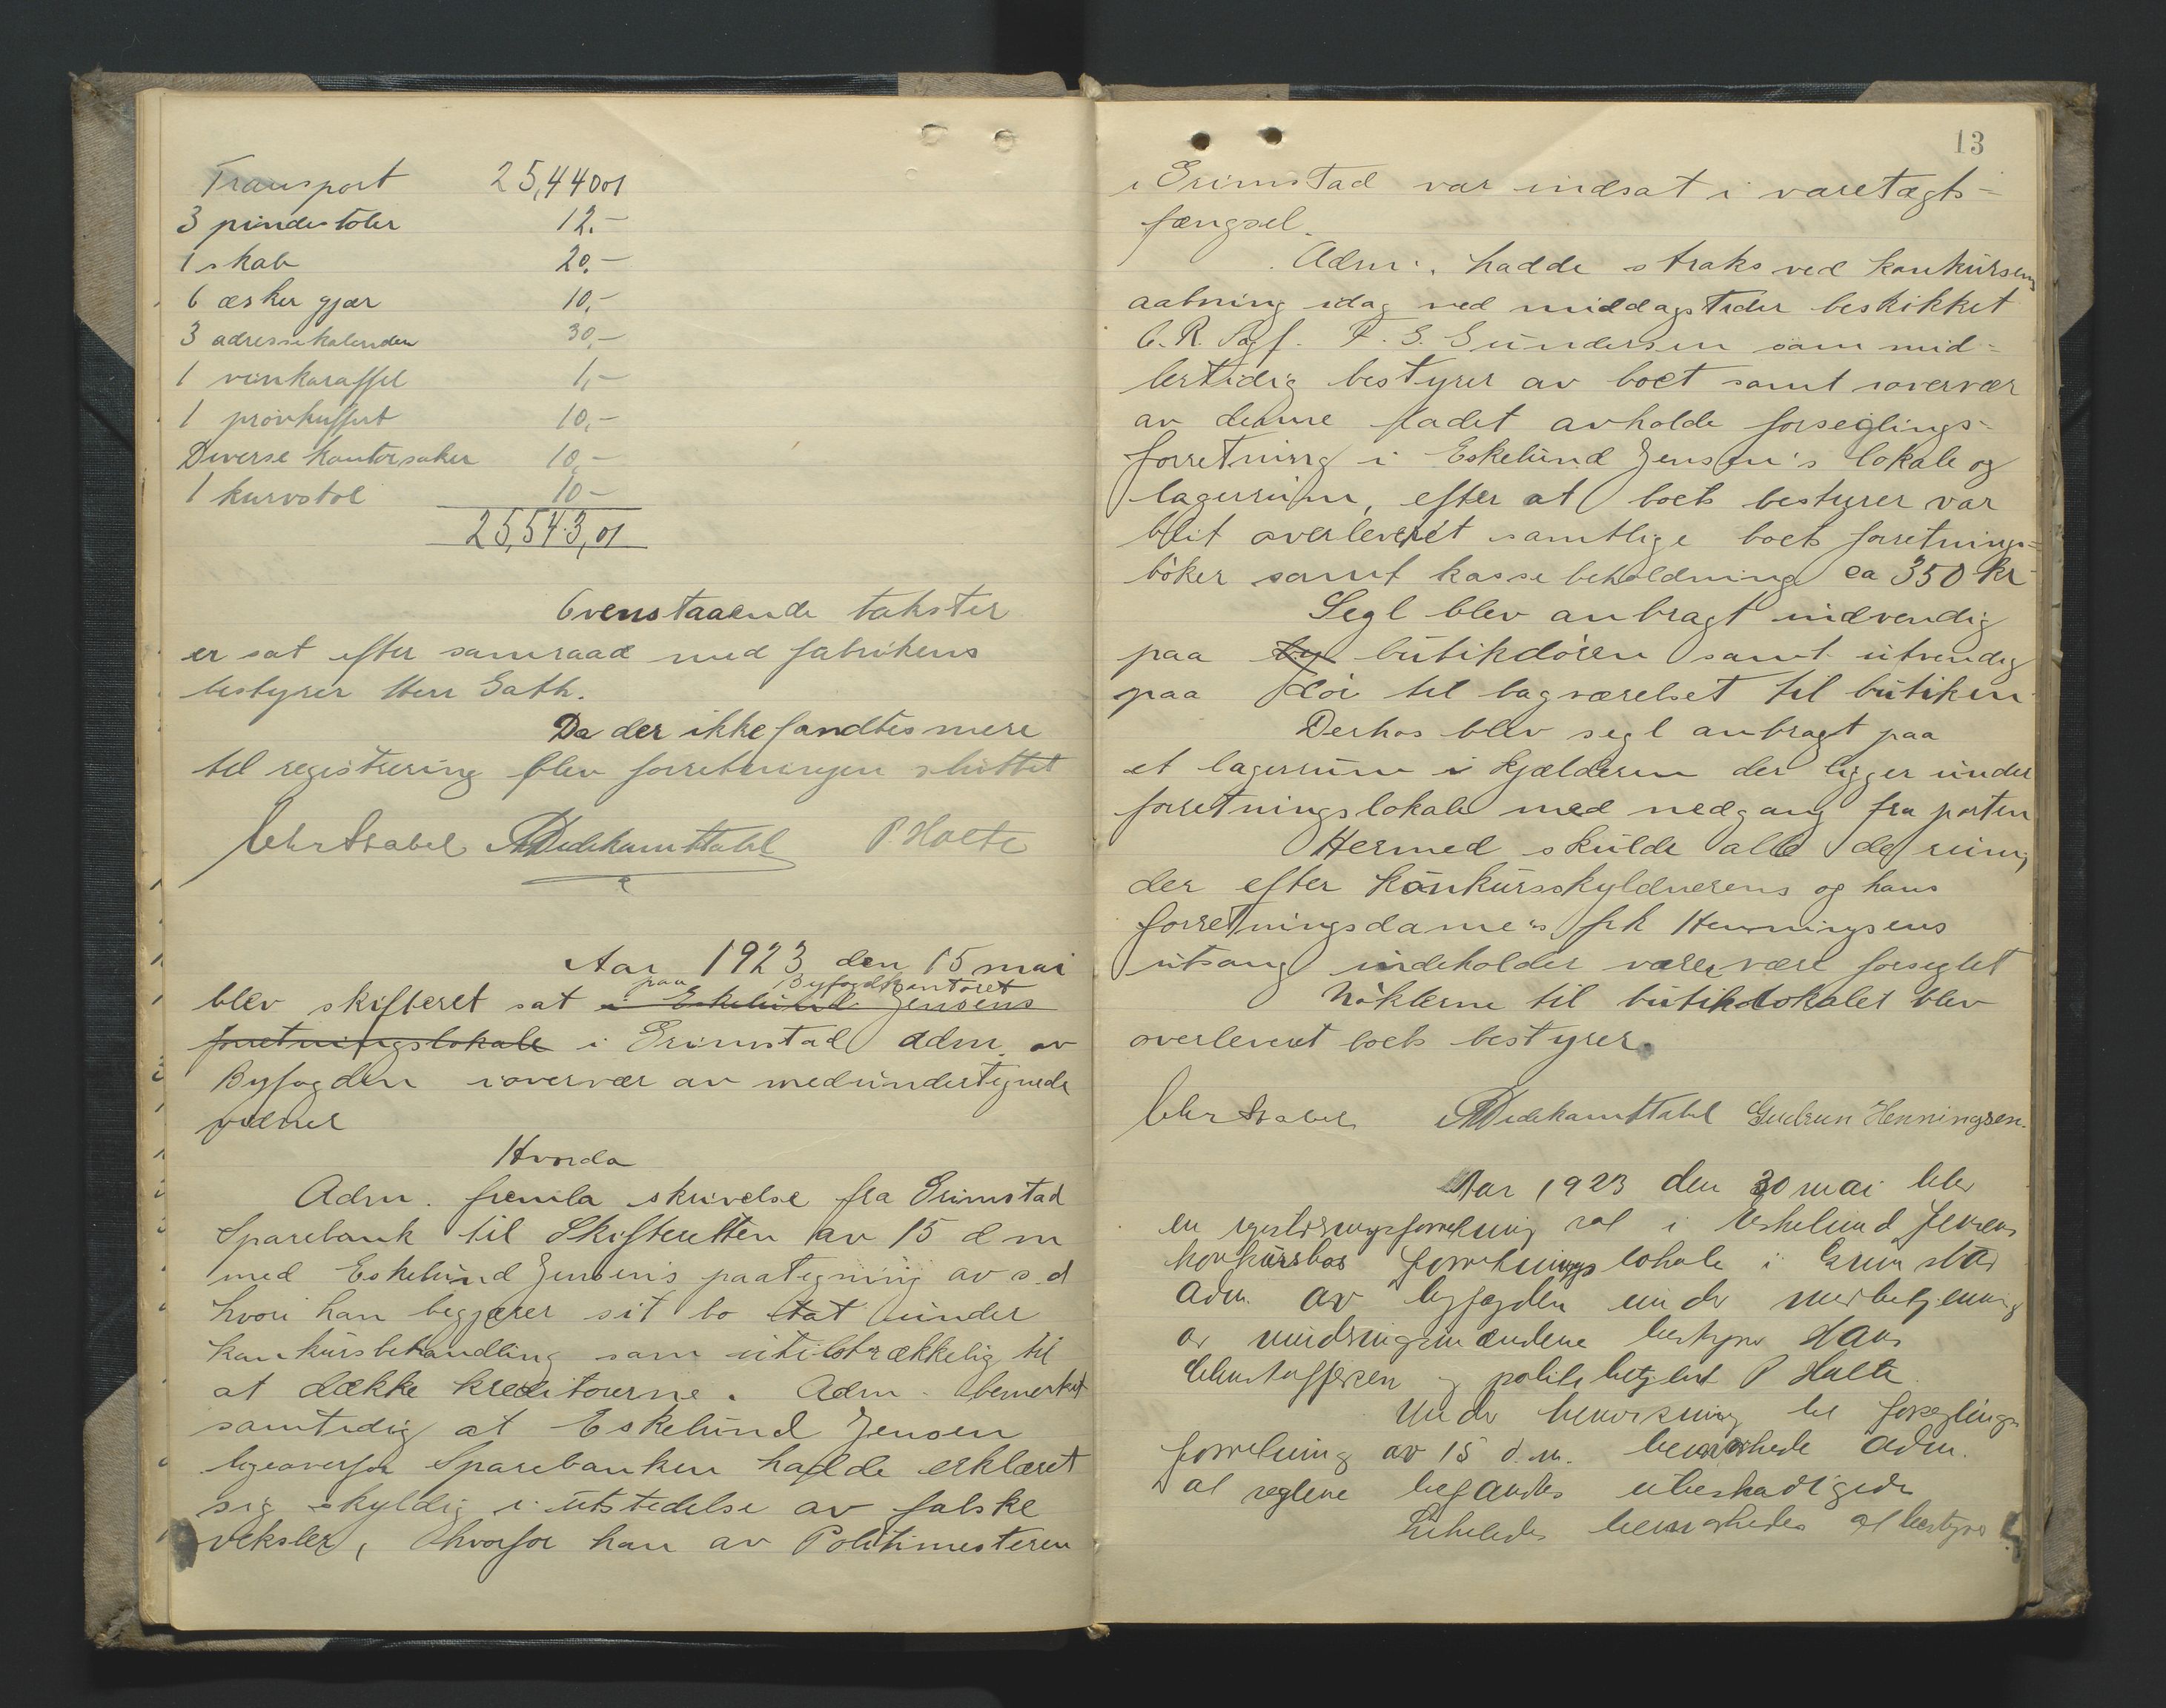 Transport 25,440 01
3 pindestoler 12.-
1 skab 20.-
6 æsker gjær 10,-
3 adressekalender 30,-
1 vinkaraffel 1,-
1 prøvkuffert 10,-
Diverse kontorsaker 10,-
1 kurvstol 10-
25,543,01
Ovenstaaende takster
er sat efter samraad med fabrikens
bestyrer Herr Gath.
Da der ikke fandtes mere
til registrering blev forretningen sluttet
P. Holte
Aar 1923 den 15 mai
paa Byfogdkontoret
blev skifteret sat i Eskelund Jensens
forretningslokale i Grimstad adm. av
Byfogden i overvær av medundertegnede
vidner
Hvorda
Adm. fremla skrivelse fra Grimstad
Sparebank til Skifteretten av 15 d m
med Eskelund Jensen's paategning av s.d
hvori han begjærer sit bo tat under
konkursbehandling som utilstrækkelig til
at dække kreditorerne. Adm. bemerket
samtidig at Eskelund Jensen
ligeoverfor Sparebanken hadde erklæret
sig skyldig i utstedelse av falske
veksler, hvorfor han av Politimesteren
13
i Grimstad var indsat i varetægts-
fængsel.
Adm. hadde straks ved konkursens
aabning idag ved middagstider beskikket
O.R. Sagf. F. G. Gundersen som mid-
lertidig bestyrer av boet samt i overvær
av denne ladet avholde forseglings-
forretning i Eskelund Jensen's lokale og
lagerrum, efter at boets bestyrer var
blit overleveret samtlige boets forretnings-
bøker samt kassebeholdning ca 350 kr
Segl blev anbragt indvendig
paa by butikdøren samt utvendig
paa dør til bagværelset til butiken
Derhos blev segl anbragt paa
et lagerrum i kjælderen der ligger under
forretningslokale med nedgang fra porten
Hermed skulde alle de rum,
der efter konkursskyldnerens og hans
forretningsdame's frk Henningsens
utsang indeholder varer være forseglet
Nøklerne til butiklokalet blev
overleveret boets bestyrer.
Gudrun Henningsen.
Aar 1923 den 30 mai blev
en registreringsforretning sat i Eskelund Jensens
konkursbos forretningslokale i Grimstad
Adm. av byfogden under medbetjening
av vurderingsmændene bestyrer Hans
Christoffersen og politibetjent P Holte
Under henvisning til forseglings
forretning av 15 d.m. bemerkede adm.
at seglene befandtes ubeskadigede
Likeledes bemerkedes at bestyrer